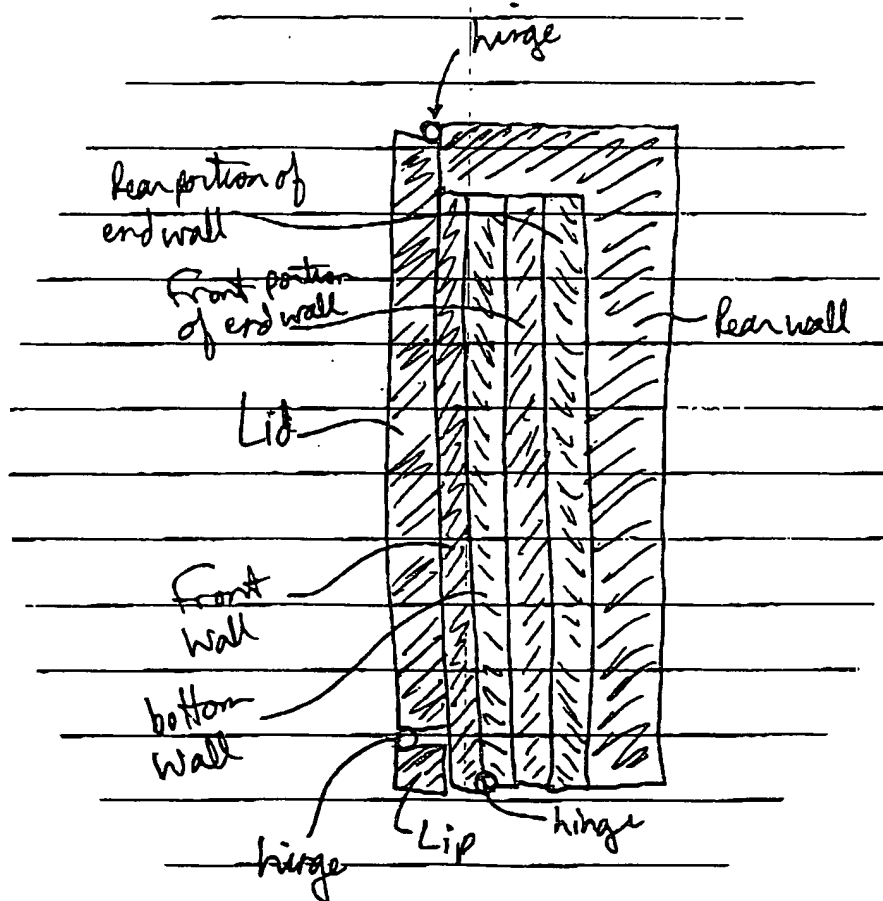 hinge
Rear portion of
end wall
Front portion
of end wall
Rear wall
Lid
Front
Wall
bottom
Wall
hinge
Lip
hinge